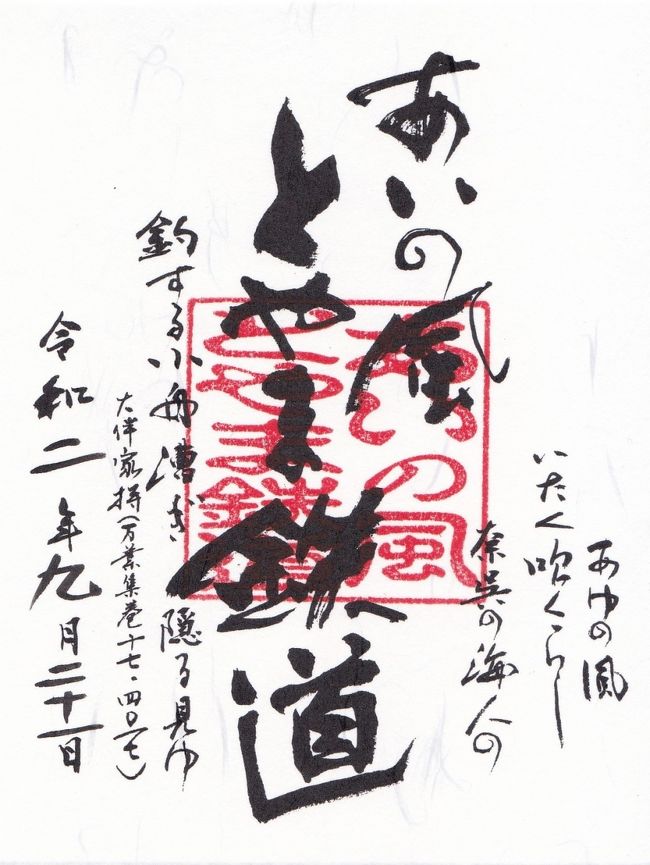 あゆの風
いたく吹くらし
奈呉の海人の
あいの風
とやま鉄道
釣する小舟漕ぎ隠る見ゆ
大伴家持(万葉集巻十七・四〇一七)
令和二年九月二十一日
あいの風
とやま